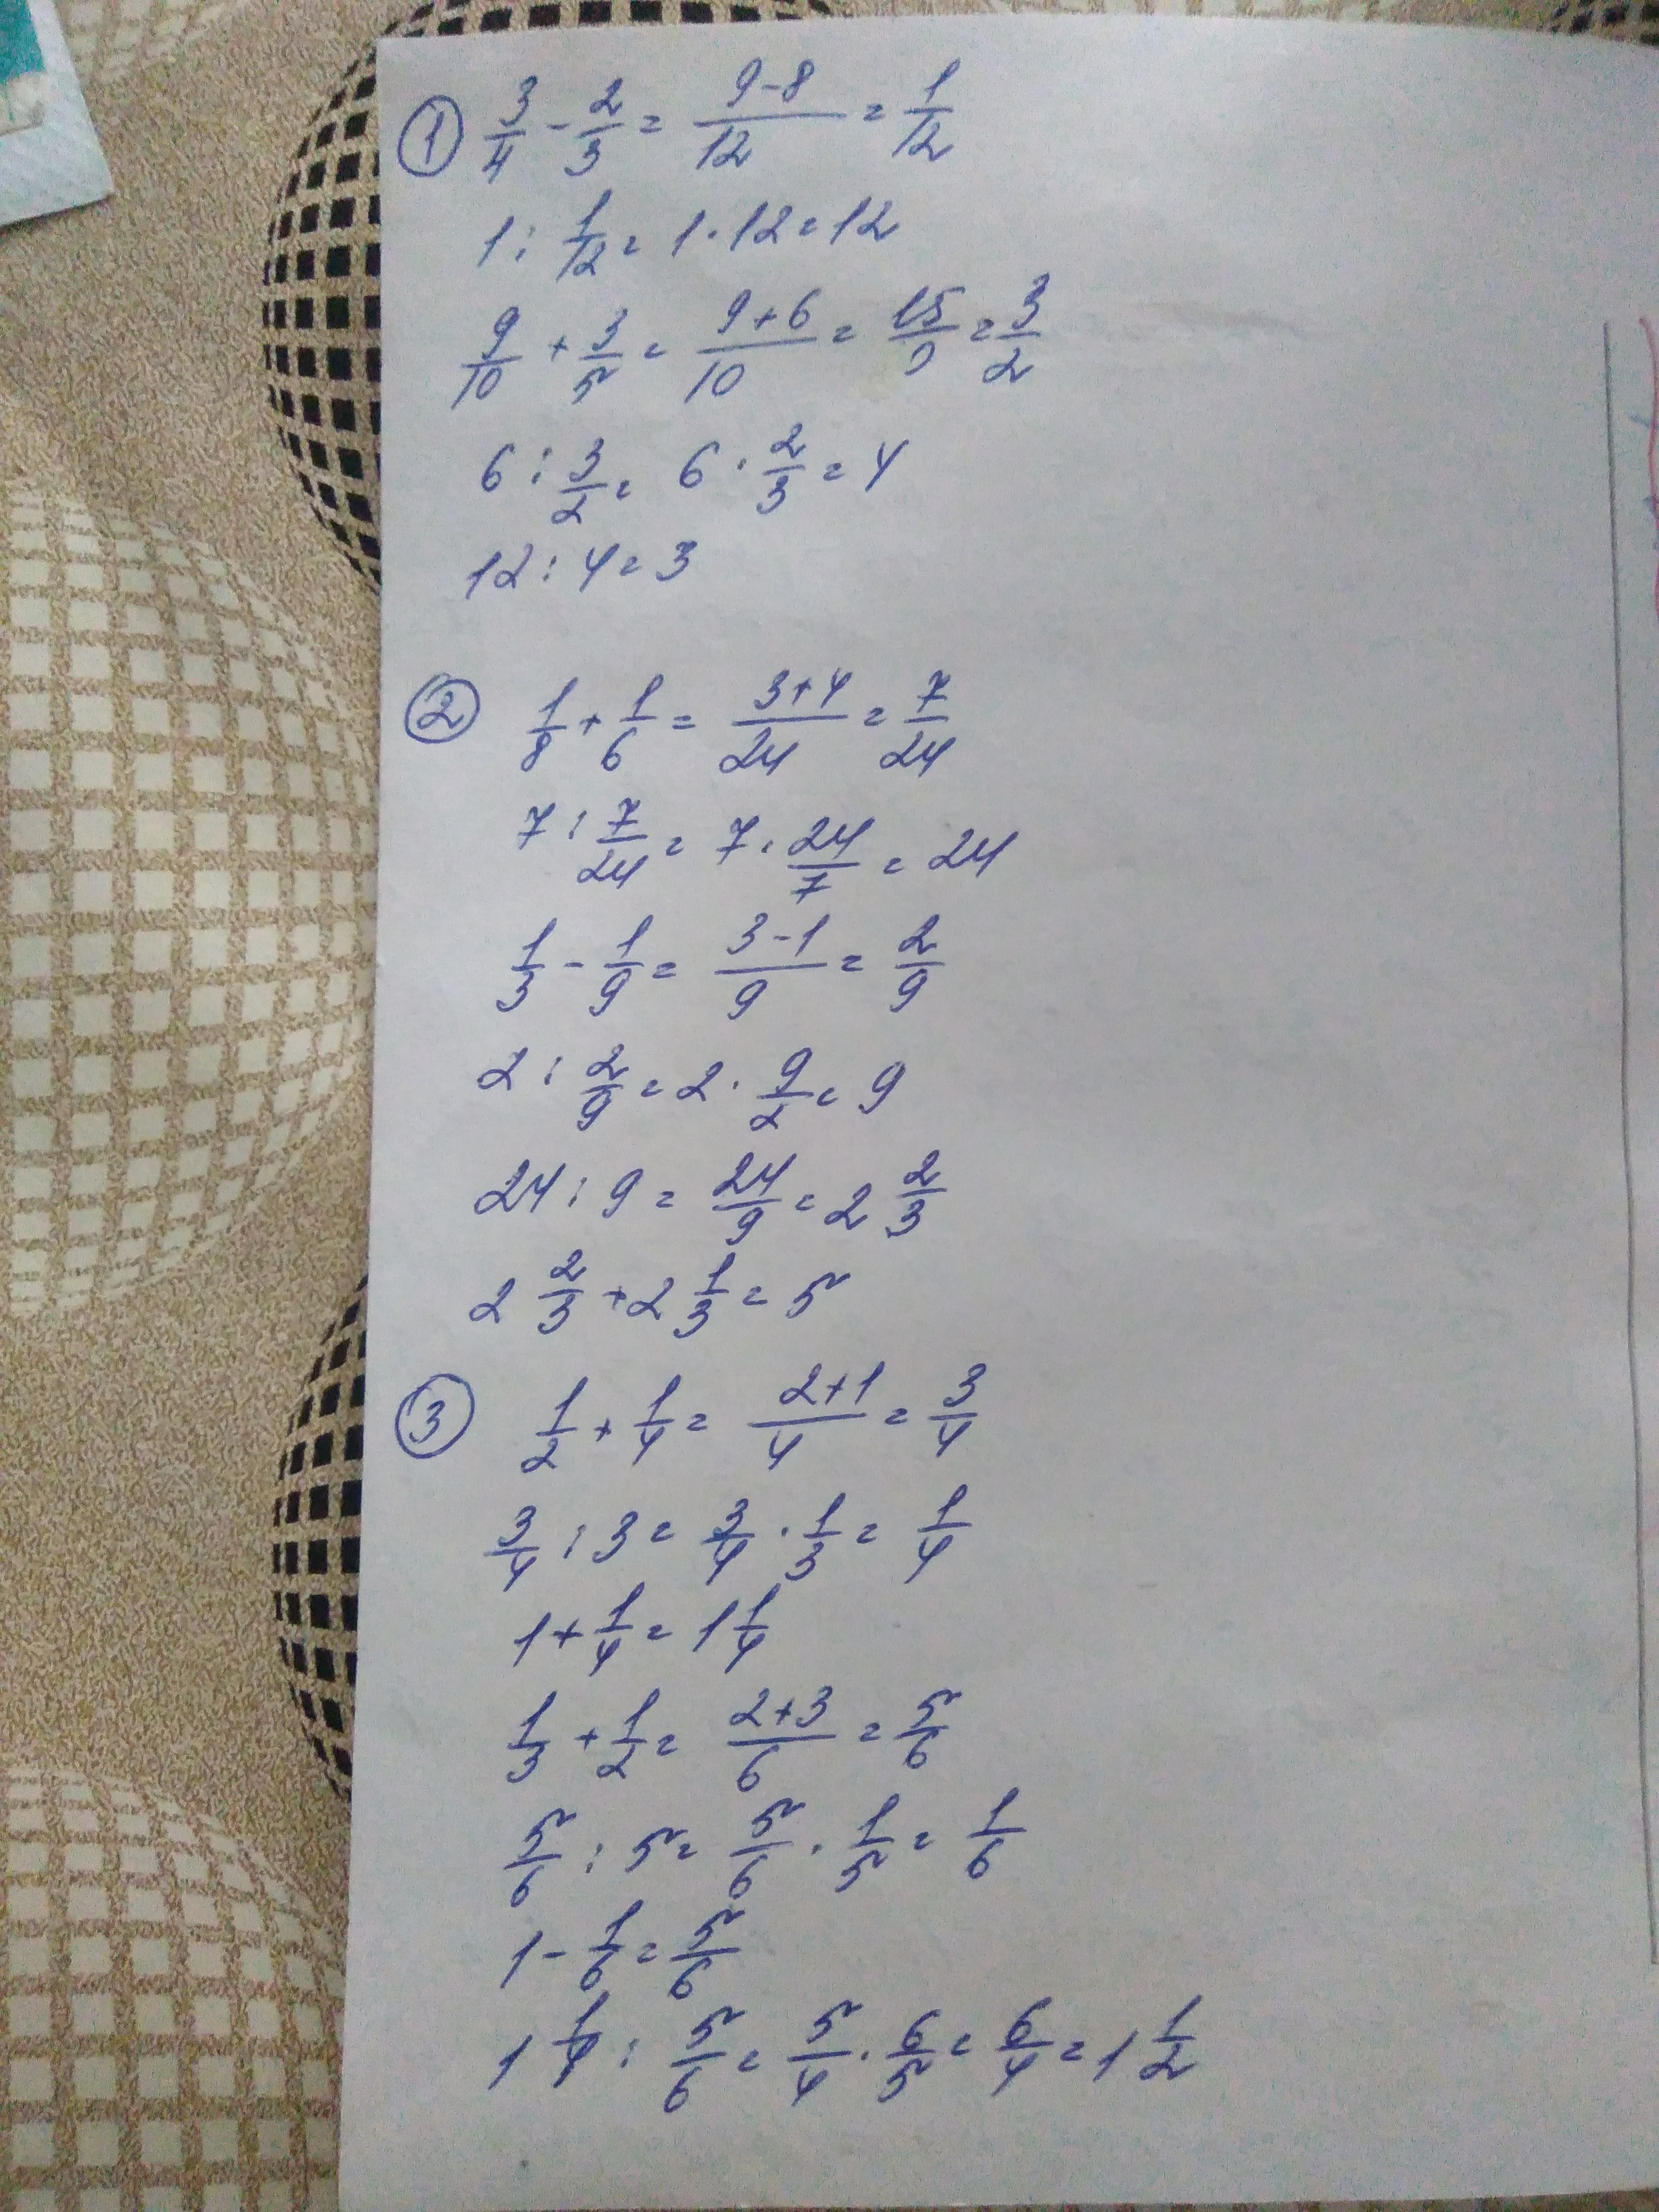 ① 3/4 - 2/3 = (9-8)/12 = 1/12
1 : 1/12 = 1 · 12 = 12
9/10 + 3/5 = (9+6)/10 = 15/ = 3/2
6 : 3/2 = 6 · 2/3 = 4
12 : 4 = 3
② 1/8 + 1/6 = (3+4)/24 = 7/24
7 : 7/24 = 7 · 24/7 = 24
1/3 - 1/9 = (3-1)/9 = 2/9
2 : 2/9 = 2 · 9/2 = 9
24 : 9 = 24/9 = 2 2/3
2 2/3 + 2 1/3 = 5
③ 1/2 + 1/4 = (2+1)/4 = 3/4
3/4 : 3 = 3/4 · 1/3 = 1/4
1 + 1/4 = 1 1/4
1/3 + 1/2 = (2+3)/6 = 5/6
5/6 : 5 = 5/6 · 1/5 = 1/6
1 - 1/6 = 5/6
1 1/4 : 5/6 = 5/4 · 6/5 = 6/4 = 1 1/2